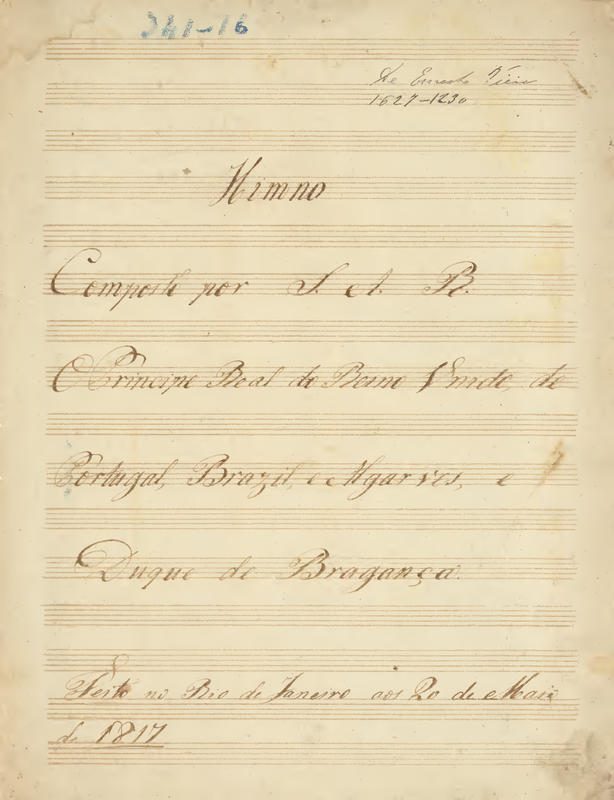 241-16
De Ernesto Vieira
1627-1230
Himno
Composto por S. A. R.
O Principe Real do Reino Unido, de
Portugal, Brazil, e Algarves, e
Duque de Bragança.
Feito no Rio de Janeiro aos 20 de Maio
de 1817